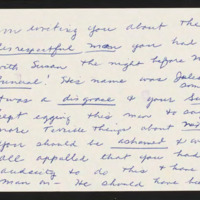 m writing you about the
disrespectful man you had
with Susan the night before
Funeral! His name was Jules
som
t was a disgrace & your
kept egging this man to sa
more Terrible things about
you should be ashamed & w
all appalled that you had
audacity to do this & have
man on - He should have be